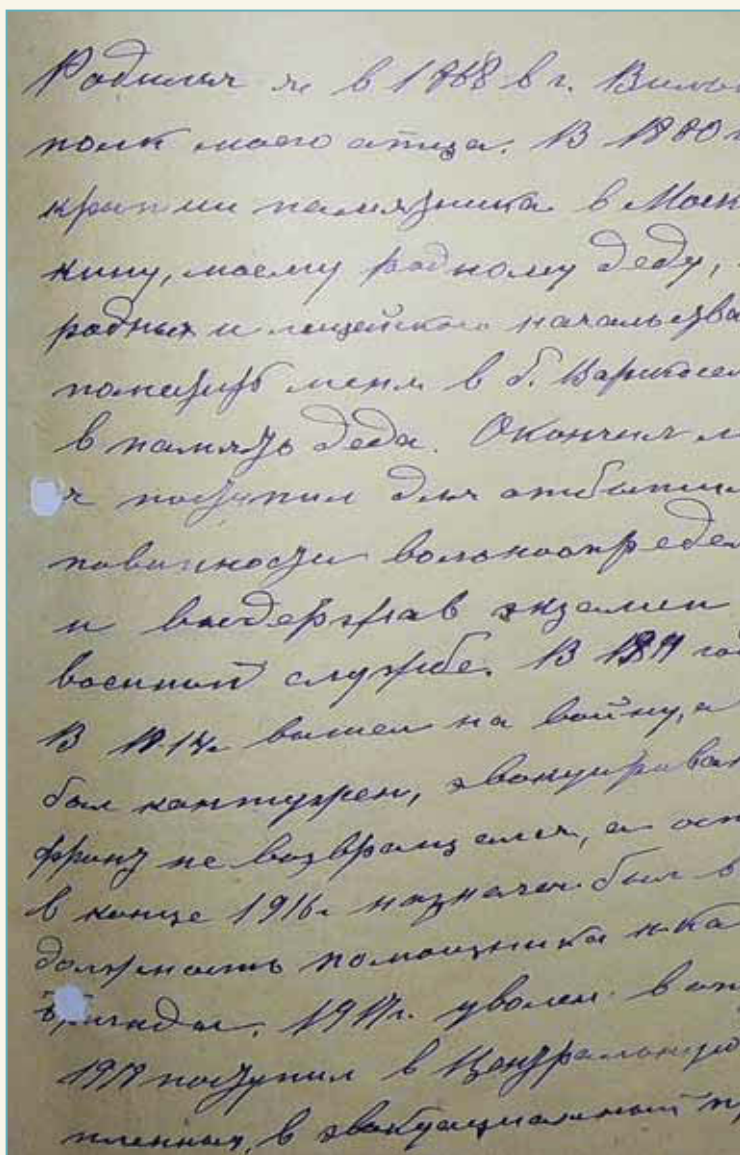 Родился я в 1868 в г. Вильн
полк моего отца. В 1880 г
крытии памятника в Моск
кину, моему родному деду,
родных и лицейского начальства
поместить меня в б. Царскосел
в память деда. Окончил л
я поступил для отбытия
повинности вольноопредел
и выдержав экзамен
военной службе. В год
В вышел на войну, а
был контужен, эвакуирован
фронт не возвращался, а ост
в конце 1916г. назначен был в
должность помощника н-ка
бригады. 1917г. уволен в от
поступил в Центральную
пленных, в эвакуационный п